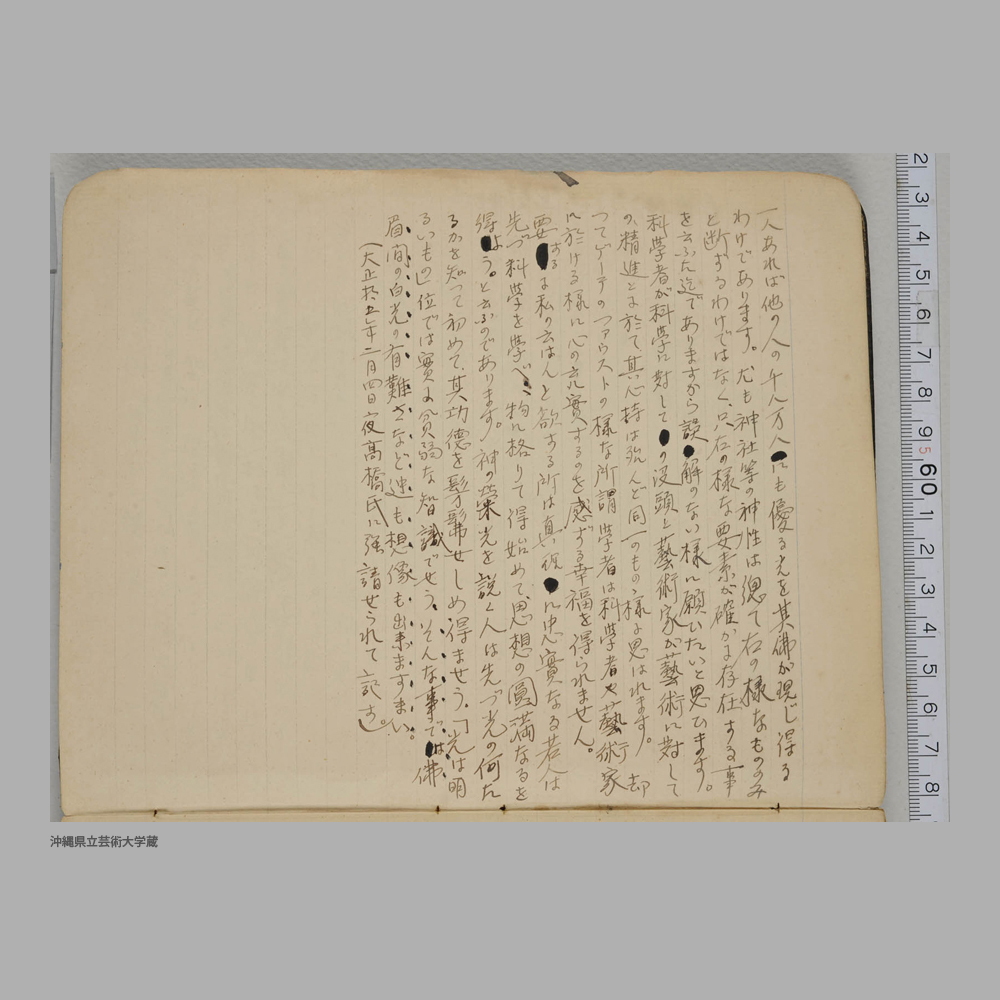 一人あれば他の人の千人万人にも優る光を其佛が現じ得る
わけであります。尤も神社等の神性は總て右の様なもののみ
と断ずるわけではなく、只右の様な要素が確かに存在する事
を云ふた迄でありますから誤解のない様に願ひたいと思ひます。
科學者が科學に対しての没頭と藝術家が藝術に対して
の精進とに於て其心持は殆んど同一のもの様に思はれます。却
つてゲーテのファウストの様な所謂學者は科學者や藝術家
に於ける様に心の充實するのを感ずる幸福を得られません。
要するに私の云はんと欲する所は真理に忠實なる若人は
先づ科學を學べ、物に格りて得始めて、思想の圓満なるを
得よう。と云ふのであります。神の栄光を説く人は先づ光の何た
るかを知つて初めて、其功徳を髣髴せしめ得ませう。「光は明
るいもの」位では實に貧弱な智識でせう。そんな事では佛
眉間の白光の有難さなど迚も想像も出来ますまい。
(大正拾五年二月四日夜髙橋氏に強請せられて記す。)
2
3
4
5
6
7
8
9
5
60
1
2
3
4
5
6
7
8
沖縄県立芸術大学蔵